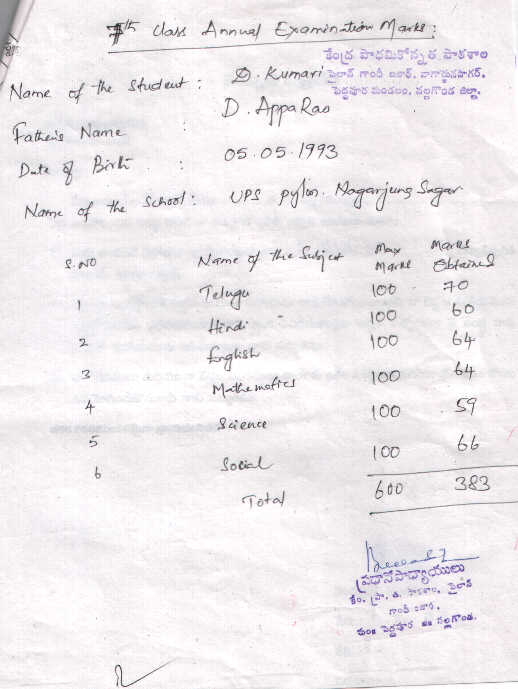 7th Class Annual Examination Marks:
కేంద్ర ప్రాథమికోన్నత పాఠశాల
పైలాన్ గాంధీ బజార్, నాగార్జునసాగర్,
పెద్దవూర మండలం, నల్లగొండ జిల్లా.
Name of the Student : D. Kumari
Father's Name : D. Appa Rao
Date of Birth : 05.05.1993
Name of the School : UPS pylon. Nagarjuna Sagar
S.NO Name of the Subject Max Marks Marks Obtained
1 Telugu 100 70
2 Hindi 100 60
3 English 100 64
4 Mathematics 100 64
5 Science 100 59
6 Social 100 66
Total 600 383
ప్రధానోపాధ్యాయులు
కేం. ప్రా. ఉ. పాఠశాల, పైలాన్
గాంధీ బజార్,
మం॥ పెద్దవూర జి॥ నల్లగొండ.